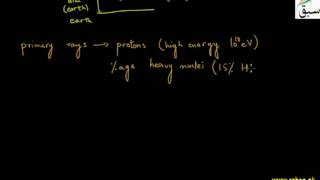 (earth)
earth
primary rays → protons (high energy 10¹⁸ eV)
%age heavy nuclei (15% H
سبق